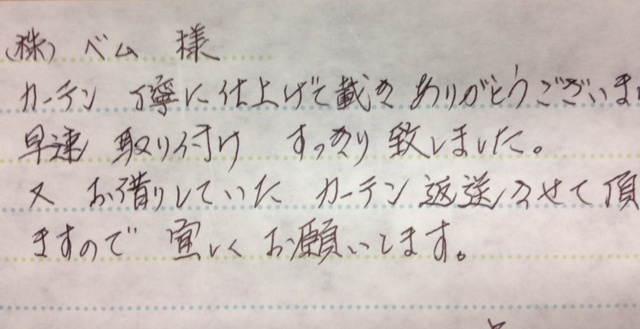 (株) ベム 様
カーテン 丁寧に仕上げて載き ありがとうございま
早速 取り付け すっきり 致しました。
又 お借りしていた カーテン 返送させて頂
ますので 宜しく お願いします。